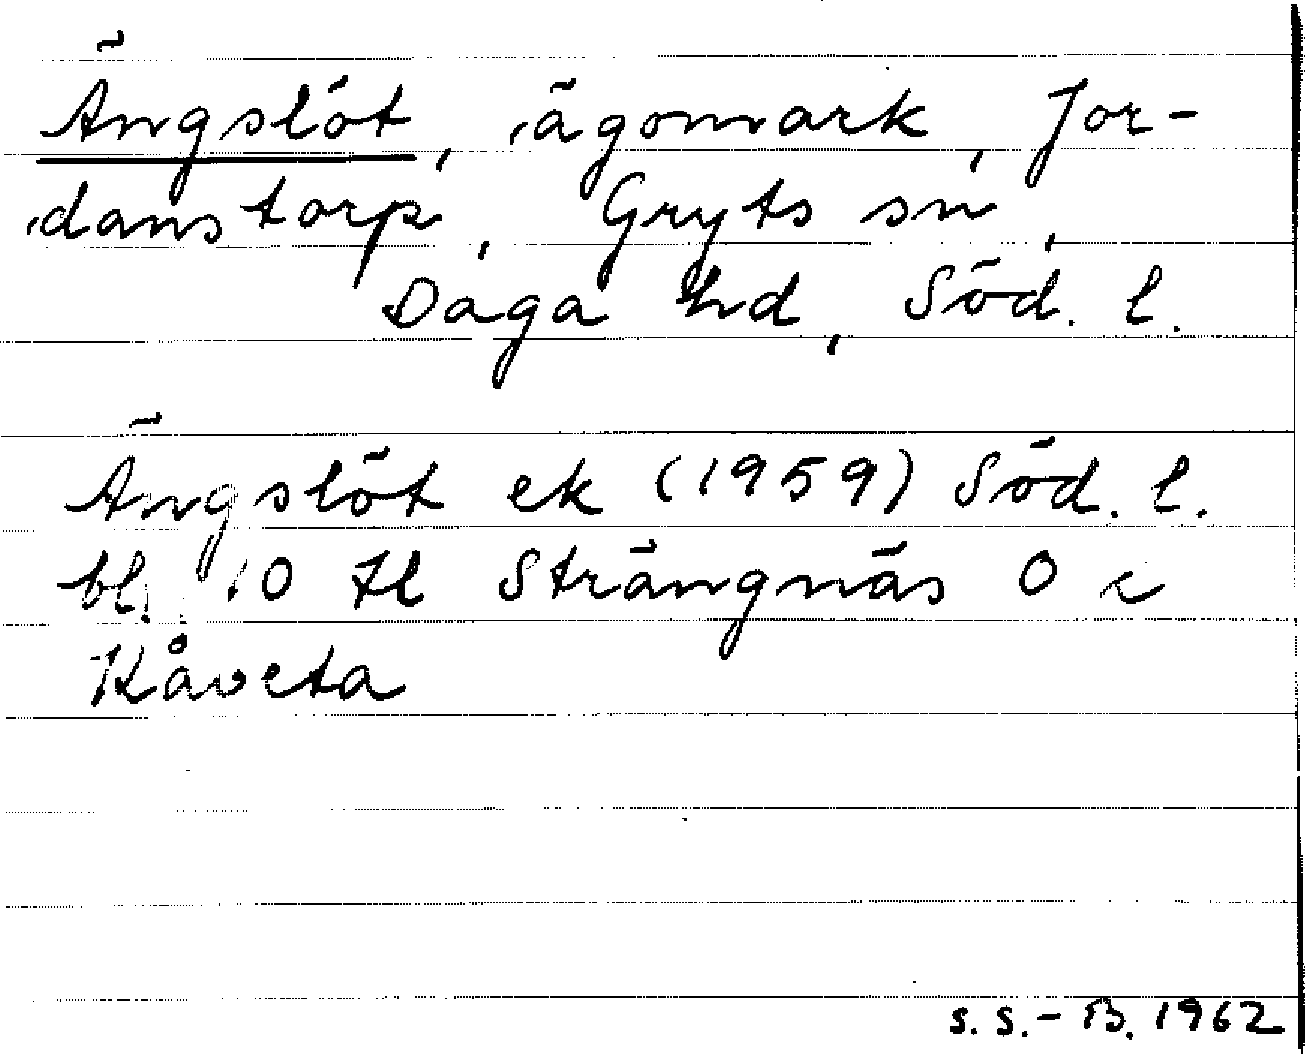 Ängslöt, ägomark, Jor-
danstorp, Gryts sn,
Daga hd, Söd. l.
Ängslöt ek (1959) Söd. l.
bl. 10 tl Strängnäs O c
Kåveta
S. S. - B. 1962